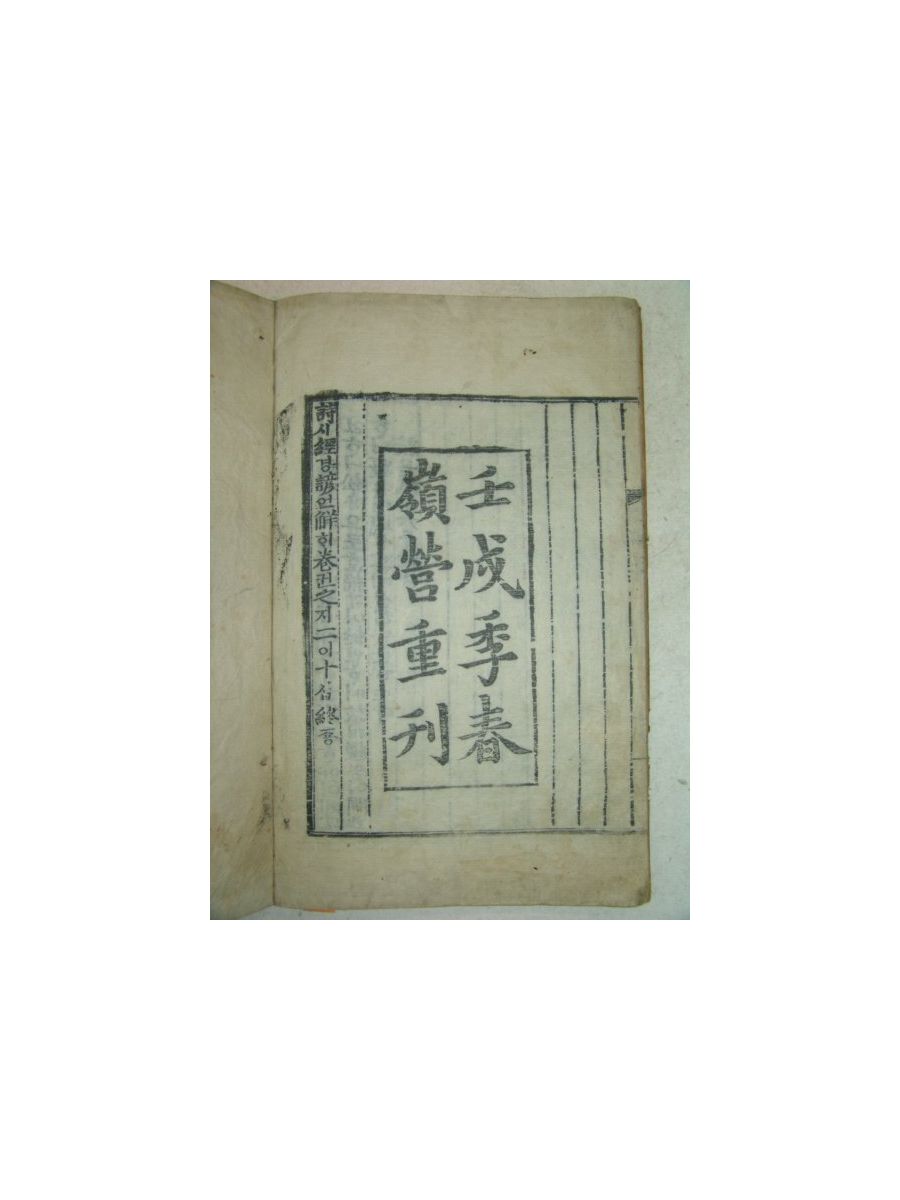 壬戌季春
嶺營重刊
詩시經경諺언觧ᄒᆡ卷권之지二이十십 終죵